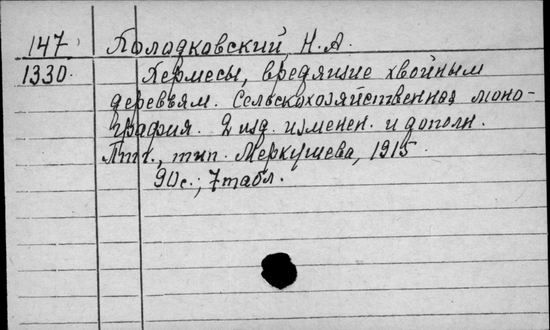 147 Холодковский, Н.А.
1330. Хермесы, вредящие хвойным
деревьям. Сельскохозяйственная моно-
графия. 2 изд. изменен. и дополн.
Птг., тип. Меркушева, 1915.
90 с.; 7 табл.